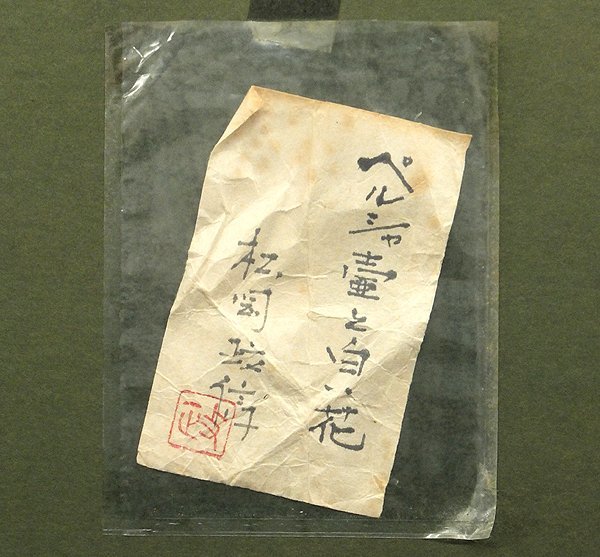 ペルシャ壷と白い花
松岡政信
政